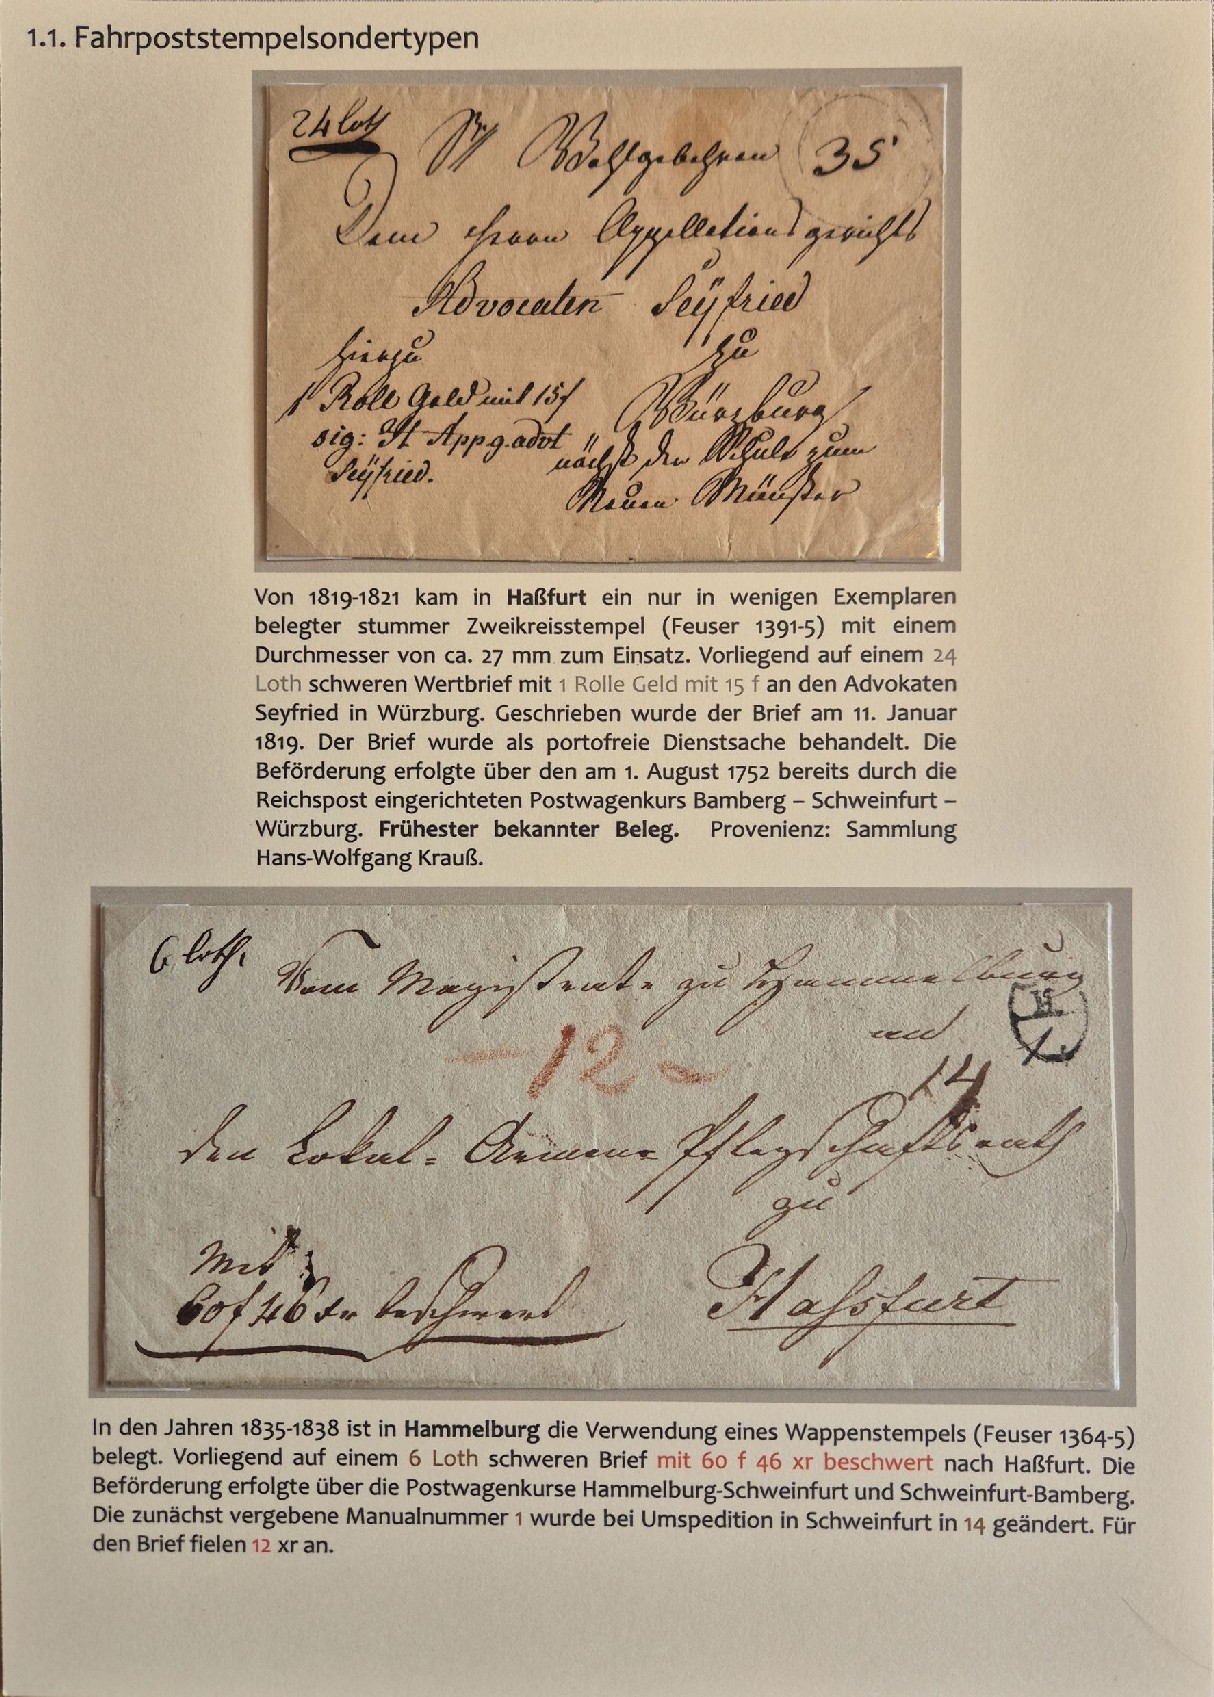 1.1. Fahrpoststempelsondertypen
24 loth
Wohlgebohren 35
Dem Herrn Appellations gerichts
Advocaten Seÿfried
hierzu zu
1 Roll Geld mit 15 f Würzburg
sig: Appg.advt nächst der Schule zum
Seÿfried. Neuen Münster
Von 1819-1821 kam in Haßfurt ein nur in wenigen Exemplaren
belegter stummer Zweikreisstempel (Feuser 1391-5) mit einem
Durchmesser von ca. 27 mm zum Einsatz. Vorliegend auf einem 24
Loth schweren Wertbrief mit 1 Rolle Geld mit 15 f an den Advokaten
Seyfried in Würzburg. Geschrieben wurde der Brief am 11. Januar
1819. Der Brief wurde als portofreie Dienstsache behandelt. Die
Beförderung erfolgte über den am 1. August 1752 bereits durch die
Reichspost eingerichteten Postwagenkurs Bamberg – Schweinfurt –
Würzburg. Frühester bekannter Beleg. Provenienz: Sammlung
Hans-Wolfgang Krauß.
6 loth.
Vom Magistrate zu Hammelburg
H.
an
12 1.
14
den Lokal- Armen Pflegschaftsrath
zu
Mit
60 f 46 xr beschwert Hassfurt
In den Jahren 1835-1838 ist in Hammelburg die Verwendung eines Wappenstempels (Feuser 1364-5)
belegt. Vorliegend auf einem 6 Loth schweren Brief mit 60 f 46 xr beschwert nach Haßfurt. Die
Beförderung erfolgte über die Postwagenkurse Hammelburg-Schweinfurt und Schweinfurt-Bamberg.
Die zunächst vergebene Manualnummer 1 wurde bei Umspedition in Schweinfurt in 14 geändert. Für
den Brief fielen 12 xr an.